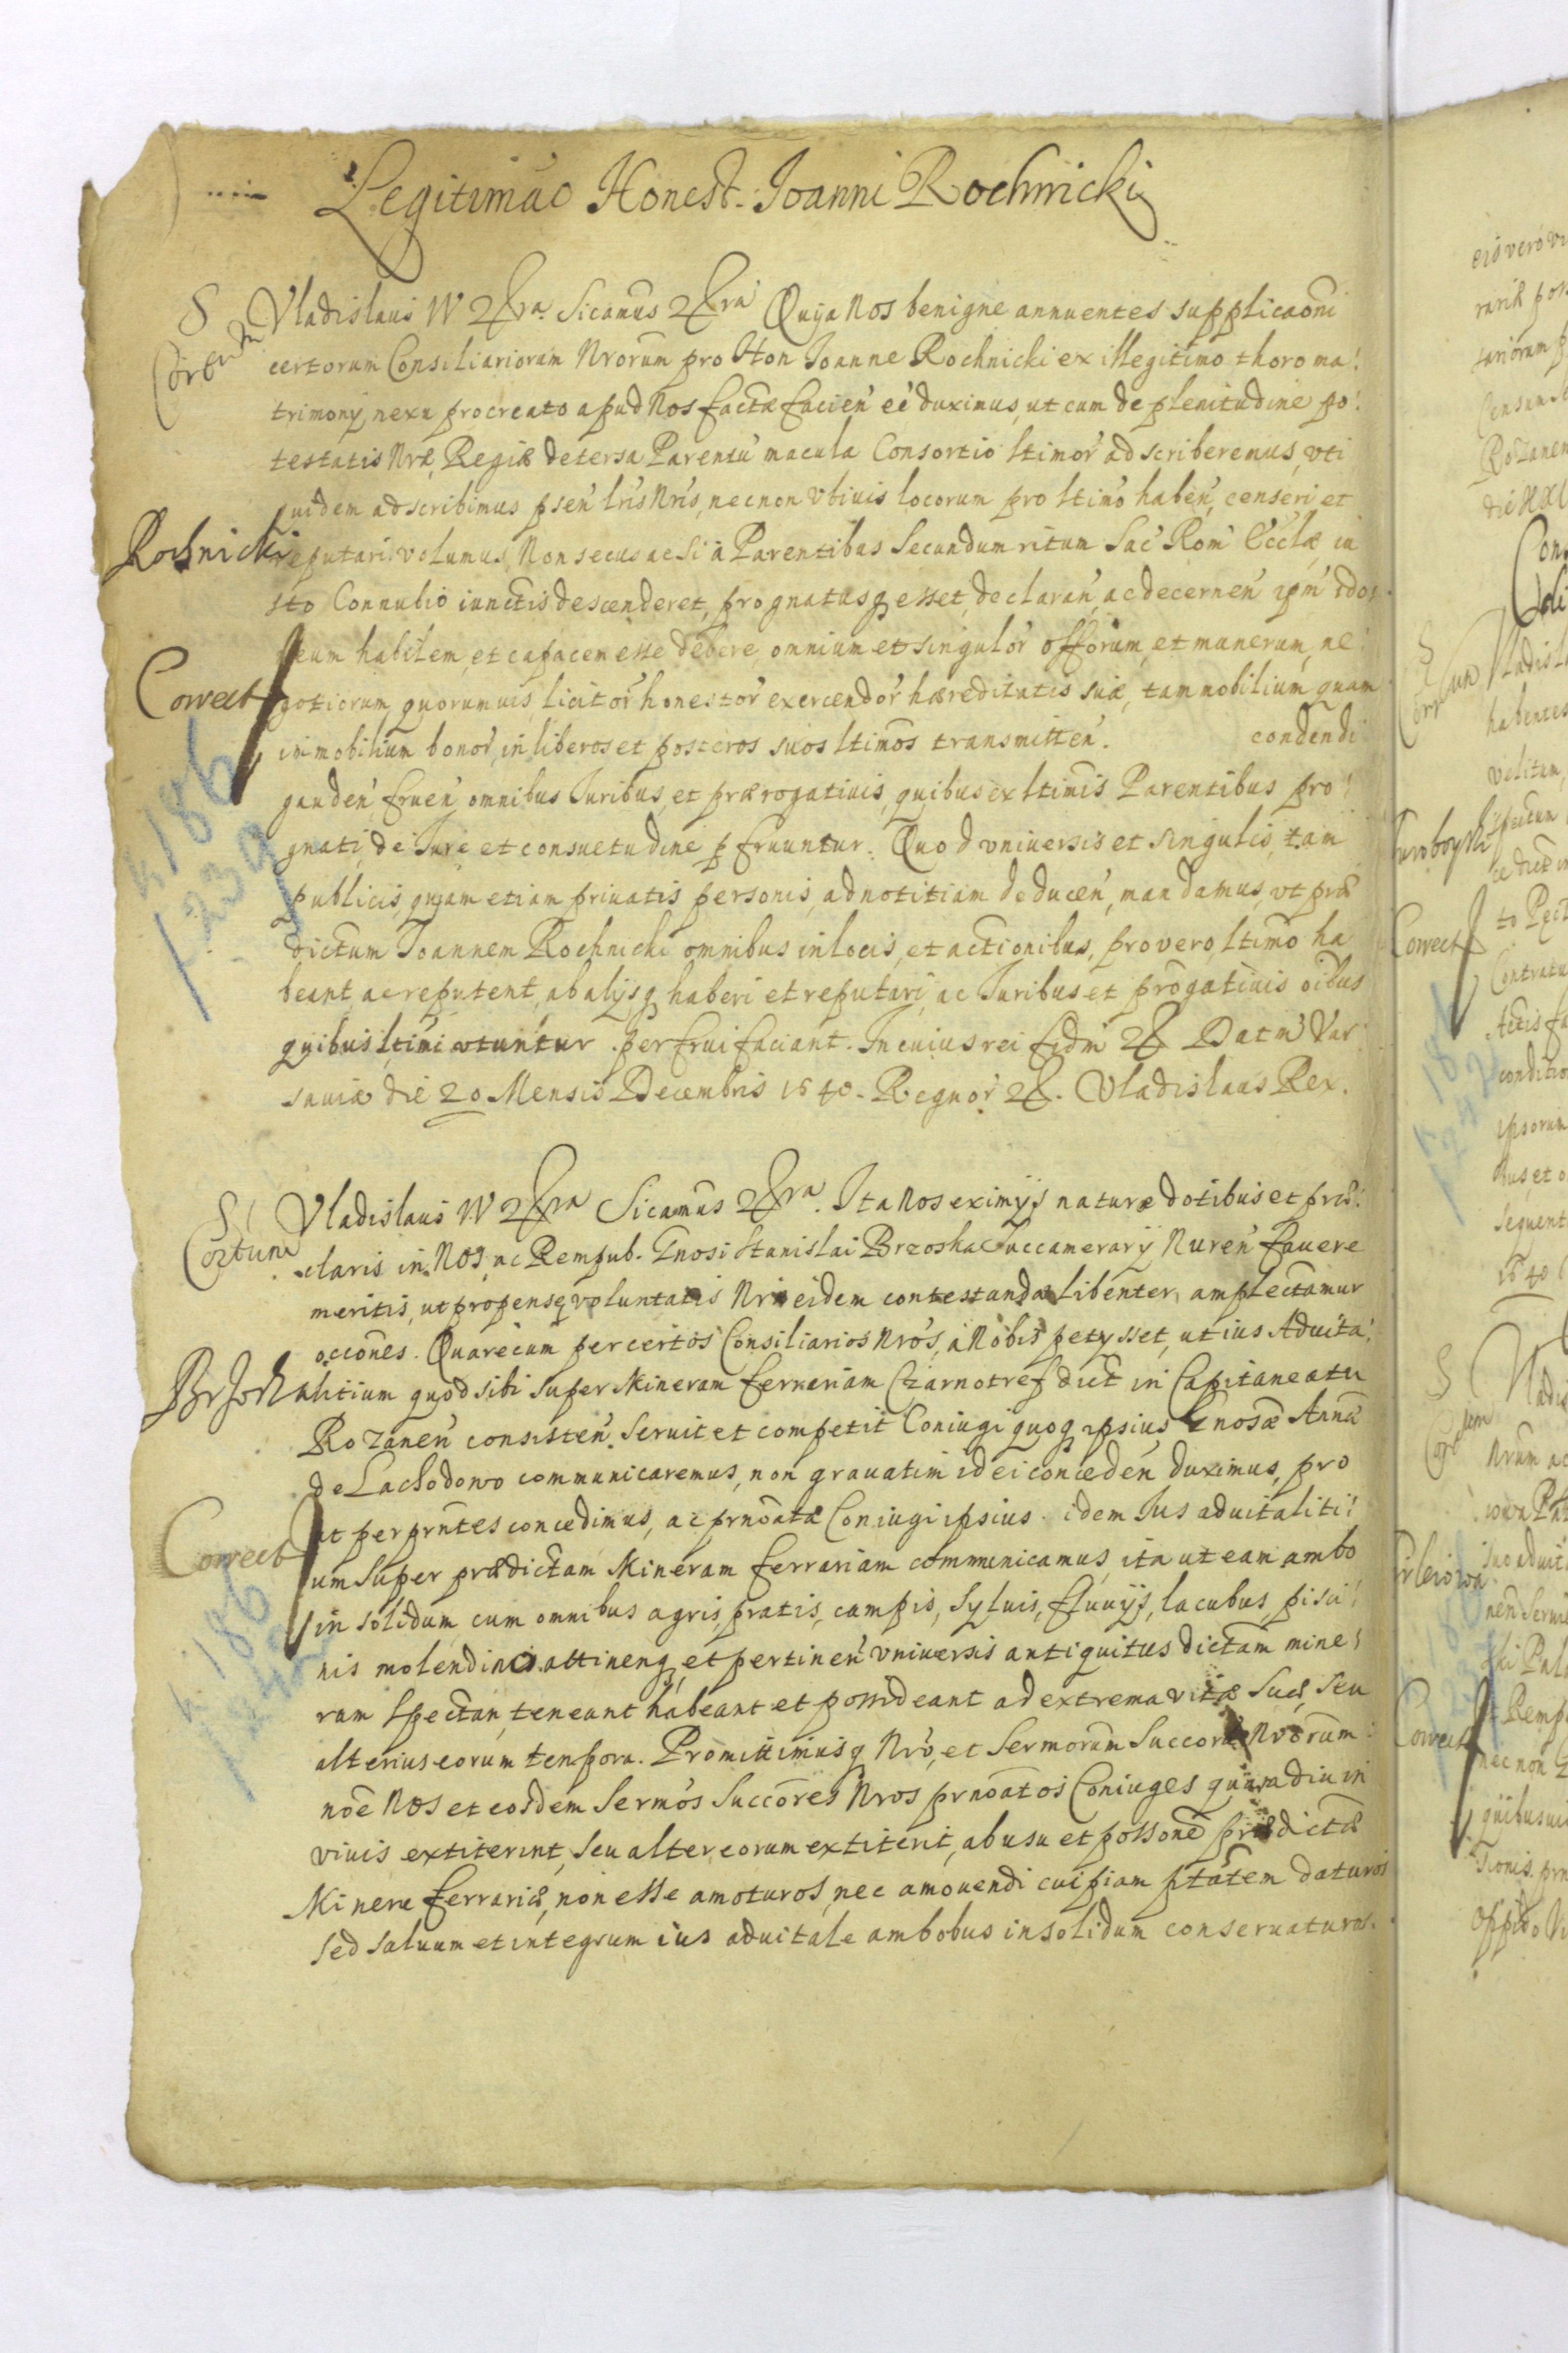 Legitimac Honest. Joanni Rochnicki
S Vladislaus IV &ra. Sicamus &ra Quia Nos benigne annuentes supplicaoni
certorum Consiliariorum Nrorum pro Hon Joanne Rochnicki ex illegitimo thoro ma:
trimonij nexu procreato apud Nos factae facien eē duximus, ut eum de plenitudine po:
testatis Nrae Regiae detersa Parentū macula Consortio ltimor adscriberemus, uti
quidem adscribimus psen lris Nris, necnon vbiuis locorum pro ltimo haben, censeri et
Rochnicki
reputari volumus, Non secus ac si a Parentibus secundum ritum Sac Rom Ecclae iu
sto Connubio iunctis descenderet, prognatusq esset, declaran, ac decernen ipm ido:
neum habilem, et capacem esse debere omnium et singulor offorum, et munerum, ne:
Correct
gotiorum quorumuis, licitor honestor exercendor haereditatis suae, tam mobilium quam
immobilium bonor, in liberos et posteros suos ltimos transmitten. condendi
gauden, fruen omnibus Juribus, et praerogatiuis, quibus ex ltimis Parentibus pro:
gnati, de Jure et consuetudine p fruuntur. Quod vniuersis et singulis, tam
publicis, quam etiam priuatis personis, ad notitiam deducen, mandamus, vt prae
dictum Joannem Rochnicki omnibus in locis, et actionibus, pro vero, ltimo ha
beant, ac reputent, ab alijsq haberi et reputari, ac Juribus et progatiuis oibus
quibus ltimi utuntur perfrui faciant. In cuius rei fidm & Datm Var
sauiae die 20 Mensis Decembris 1640. Regnor &. Vladislaus Rex.
S Vladislaus IV &ra Sicamus &ra. Ita Nos eximijs naturae dotibus et prae:
claris in Nos, ac Rempub. Gnosi Stanislai Brzoska Succamerarij Nuren fauere
meritis, ut propensae voluntatis Nrae eidem contestandae libenter amplectamur
occones. Quare cum per certos Consiliarios Nros, a Nobis petysset, ut ius Aduita:
Brzoska
litium quod sibi super Mineram ferrariam Czarnotref dict in Capitaneatu
Rozanen consisten. Seruit et competit Coniugi quoq ipsius Gnosae Annae
de Lachodowo communicaremus, non grauatim id ei conceden duximus, pro
ut per prntes concedimus, ac prnoatae Coniugi ipsius idem Jus aduitaliti:
Correct
um super praedictam Mineram ferrariam communicamus, ita ut eam ambo
in solidum, cum omnibus agris, pratis, campis, syluis, fluuijs, lacubus, pisci:
nis molendinis attinenq, et pertinen vniuersis antiquitus dictam mine:
ram spectan, teneant habeant et possideant ad extrema vitae suae, seu
alterius eorum tempora. Promittimusq Nro, et Sermorum Succorū Nrorum
noē Nos et eosdem Sermos Succores Nros prnoatos Coniuges quamdiu in
viuis extiterint, seu alter eorum extiterit, ab usu et possone praedictae
Minerae ferrariae, non esse amoturos, nec amouendi cuipiam ptatem daturos
sed saluum et integrum ius aduitale ambobus in solidum conseruaturos.